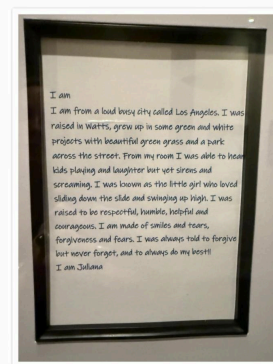 I am
I am from a loud busy city called Los Angeles. I was
raised in Watts, grew up in some green and white
projects with beautiful green grass and a park
across the street. From my room I was able to hear
kids playing and laughter but yet sirens and
screaming. I was known as the little girl who loved
sliding down the slide and swinging up high. I was
raised to be respectful, humble, helpful and
courageous. I am made of smiles and tears,
forgiveness and fears. I was always told to forgive
but never forget, and to always do my best!!
I am Juliana